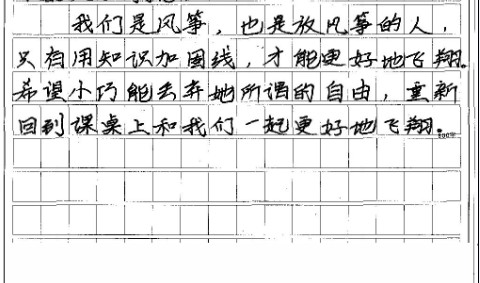 我们是风筝，也是放风筝的人，
只有用知识加固线，才能更好地飞翔。
希望小巧能丢弃她所谓的自由，重新
回到课桌上和我们一起更好地飞翔。